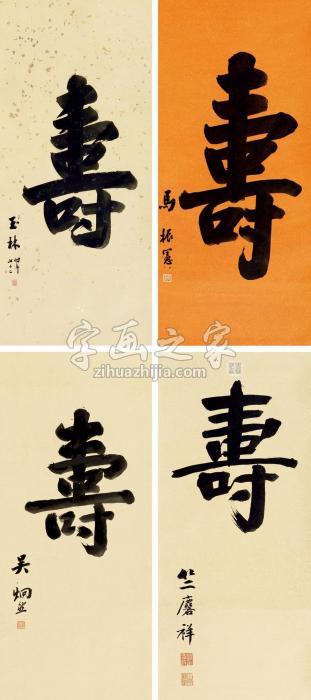 壽
玉林
壽
馬振憲
字画之家
zihuazhijia.com
壽
吴炯然
壽
竺麐祥